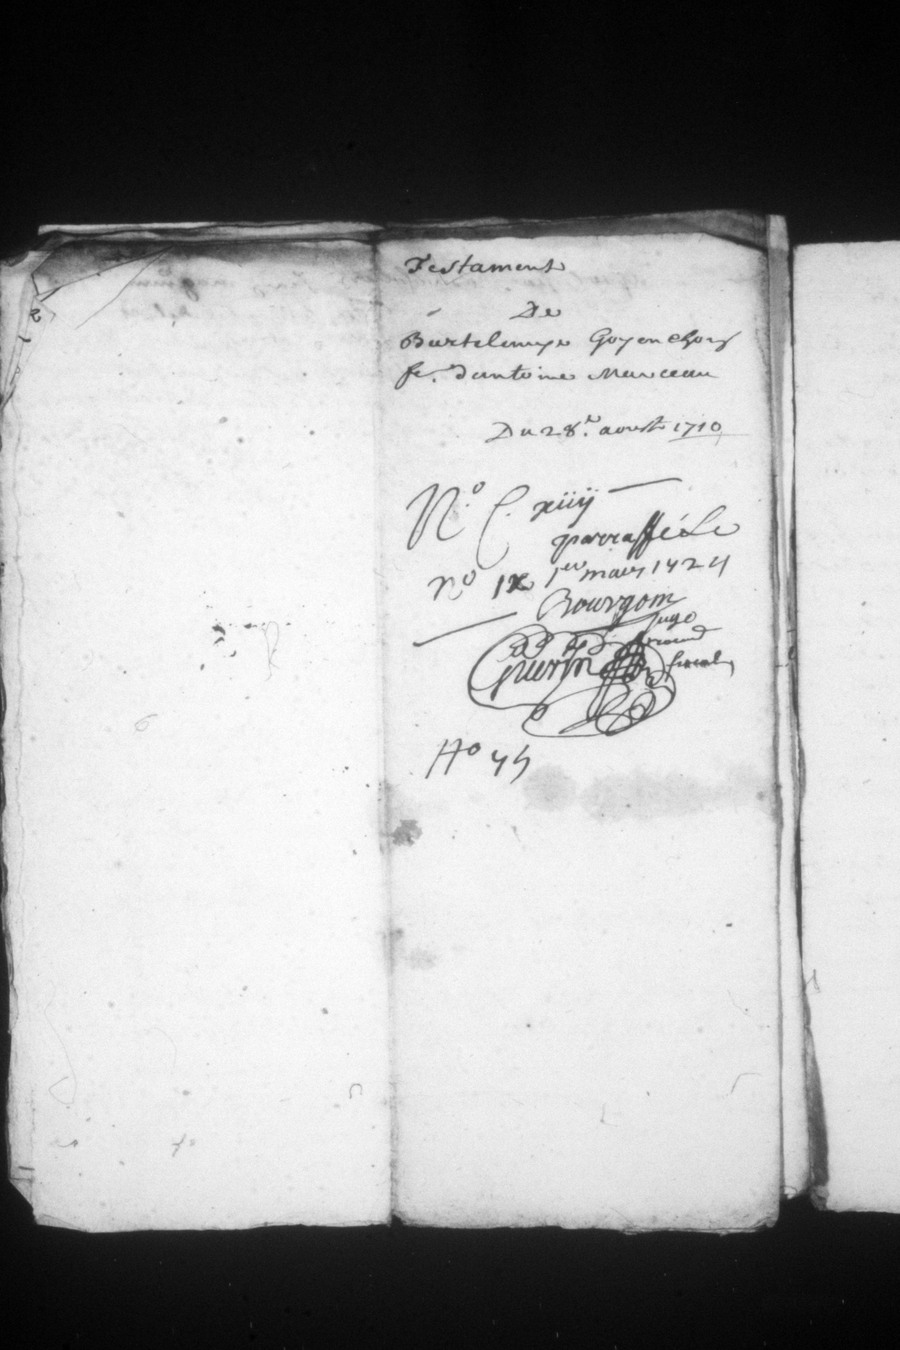 Testament
De
Bartelemye Goyenchon
fe. dantoine Marceau
Du 28.e aoust 1710
No. C. xiiij
parraffé Le
No IX 1er mars 1724
Bourgom
juge
Guerin
fiscal
No 45